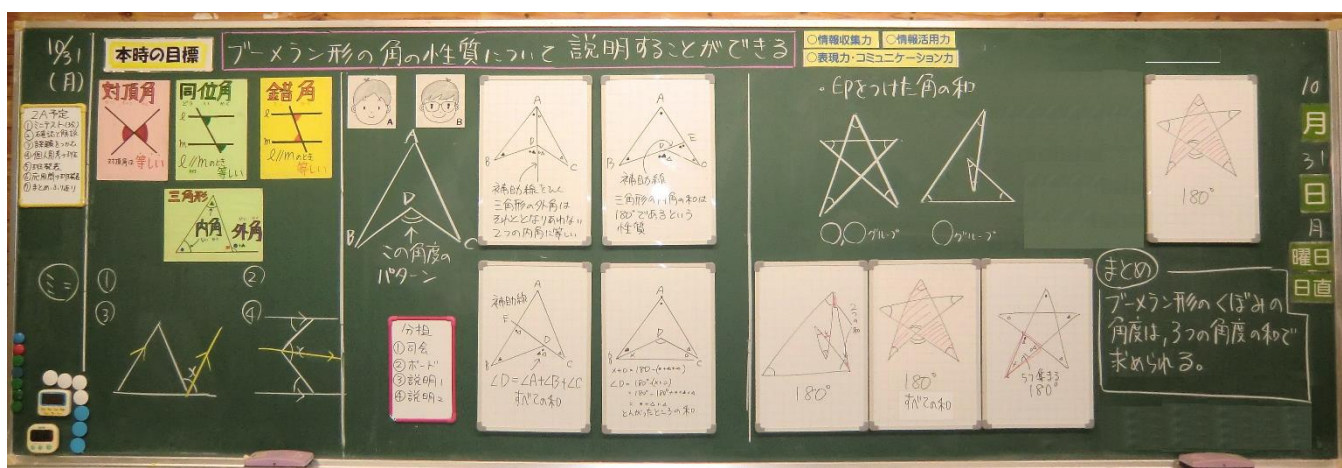 10/31
(月)
本時の目標
ブーメラン形の角の性質について説明することができる
○情報収集力
○情報活用力
○表現力・コミュニケーション力
2A予定
ミニ
対頂角
対頂角は等しい
同位角
l
m
l//mのとき
等しい
錯角
l
m
l//mのとき
等しい
三角形
内角
外角
①
②
③
④
A
B
A
B
C
D
この角度の
パターン
分担
①司会
②ボード
③説明1
④説明2
A
B
C
D
補助線をひく
三角形の外角は
それととなりあわない
2つの内角に等しい
A
B
C
D
E
補助線
三角形の内角の和は
180°であるという
性質
補助線
A
B
C
D
∠D=∠A+∠B+∠C
すべての和
A
B
C
D
とんがったところの和
・印をつけた角の和
○,○グループ
○グループ
180°
180°
すべての和
180°
180°
まとめ
ブーメラン形のくぼみの
角度は,3つの角度の和で
求められる。
10
月
31
日
月
曜日
日直